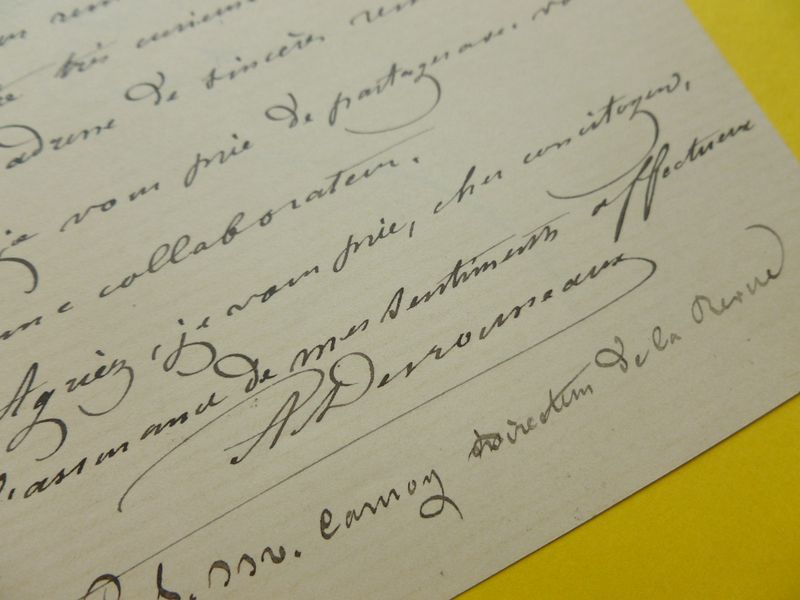 très curieux
adresse de sincères
je vous prie de partager avec
collaborateur.
Agréez, je vous prie, cher concitoyen,
l'assurance de mes sentiments affectueux
A. Desrousseaux
Carnoy Directeur de la Revue